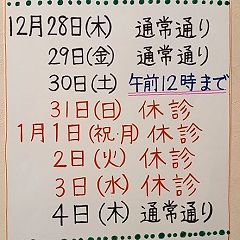 12月28日(木) 通常通り
29日(金) 通常通り
30日(土) 午前12時まで
31日(日) 休診
1月1日(祝・月) 休診
2日(火) 休診
3日(水) 休診
4日(木) 通常通り